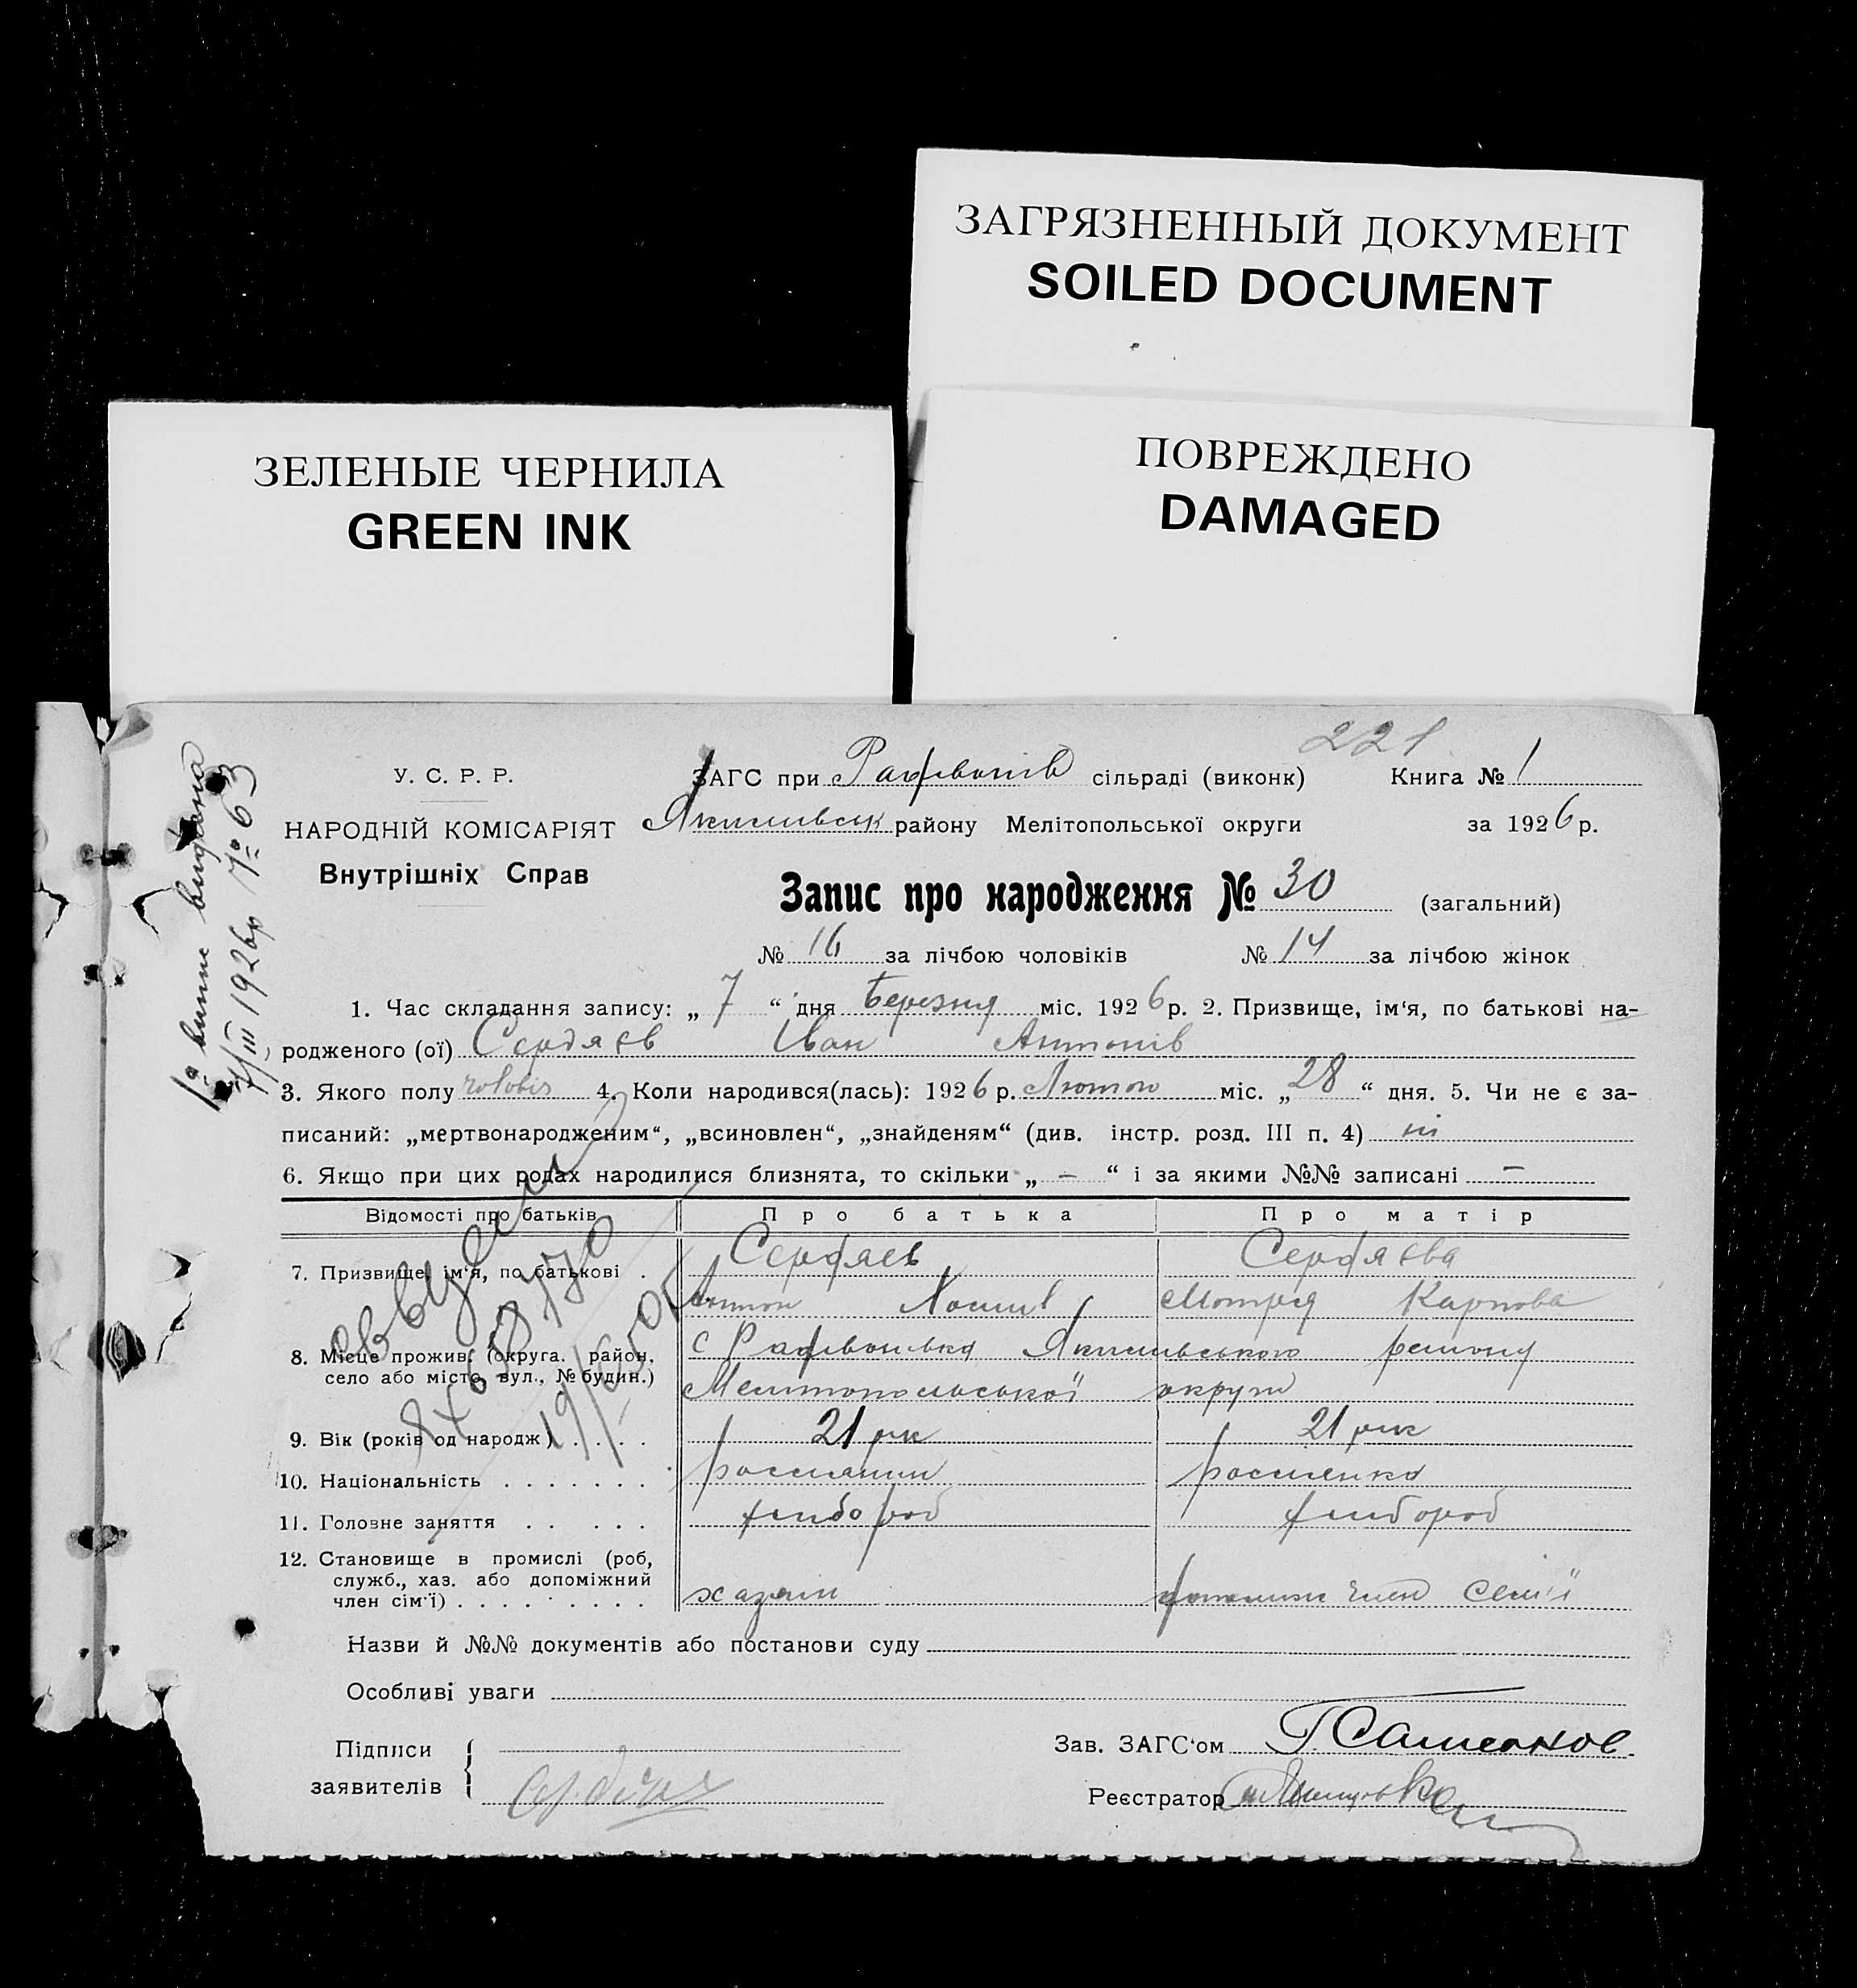 ЗАГРЯЗНЕННЫЙ ДОКУМЕНТ
SOILED DOCUMENT
ЗЕЛЕНЫЕ ЧЕРНИЛА
GREEN INK
ПОВРЕЖДЕНО
DAMAGED
221
У. С. Р. Р.
ЗАГС при сільраді (виконк) Книга № 1
НАРОДНІЙ КОМІСАРІЯТ
району Мелітопольської округи за 1926 р.
Внутрішніх Справ
Запис про народження № 30 (загальний)
№ 16 за лічбою чоловіків № 14 за лічбою жінок
1. Час складання запису: „ 7 “ дня березня міс. 1926 р. 2. Призвище, ім‘я, по батькові на-
родженого (ої) Сердяєв Іван Антонів
3. Якого полу 4. Коли народився(лась): 1926 р. Лютого міс. „ 28 “ дня. 5. Чи не є за-
писаний: „мертвонародженим“, „всиновлен“, „знайденям“ (див. інстр. розд. III п. 4) ні
6. Якщо при цих родах народилися близнята, то скільки „ – “ і за якими №№ записані –
Відомості про батьків Про батька Про матір
7. Призвище, ім‘я, по батькові . Сердяев Сердяєва
Антон Мотря Карпова
8. Місце прожив. (округа. район, село або місто, вул., № будин.) с Якимівського району
Мелитопольської округи
9. Вік (років од народж) . . . . 21 рік 21 рік
10. Національність . . . . . . . россиянин россиенка
11. Головне заняття . . . . . хлібороб хлібороб
12. Становище в промислі (роб,
служб., хаз. або допоміжний
член сім‘ї) . . . . . . . . . хазяін допоміжн член семї
Назви й №№ документів або постанови суду
Особливі уваги
Підписи
заявителів
Зав. ЗАГС‘ом
Реєстратор